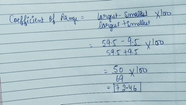 Coefficient of Range = Largest - Smallest × 100
Largest + Smallest
= 59.5 - 9.5 × 100
59.5 + 9.5
= 50 × 100
69
= 72.46